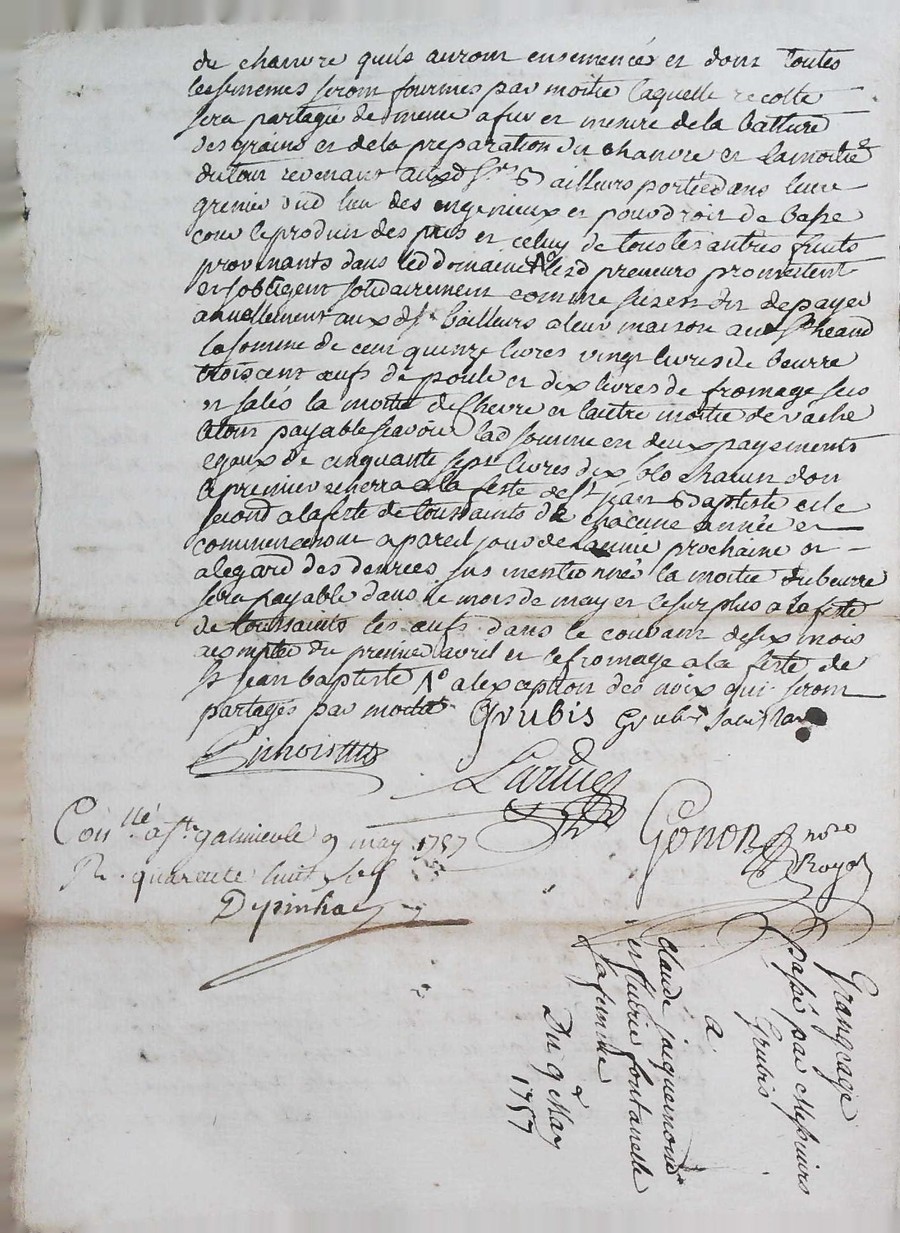 de chanvre quils auront ensemencés et dont toutes
les semences seront fournies par moitié laquelle recolte
sera partagée de meme a fur et mesure de la batture
des grains et de la preparation du chanvre et la moitié
du tout revenant auxd Srs Bailleurs portée dans leur
grenier dud lieu des engenieux et pour droit de basse
cour le produit des prés et celuy de tous les autres fruits
provenants dans led domaine lesd preneurs promettent
et sobligent solidairement comme sus est dit de payer
anuellement aux dSrs bailleurs a leur maison au St heand
la somme de cent quinze livres vingt livres de beurre
trois cent œufs de poule et dix livres de fromage secs
et salés la moitié de Chevre et lautre moitié de vache
le tout payable scavoir lad somme en deux payements
egaux de cinquante sept livres dix sols chacun dont
le premier echerra a la feste de St jean Baptiste et le
second a la feste de toussaints de chacune année et
commenceront a pareil jour de lannée prochaine et
a legard des denrees sus mentionnés la moitié du beurre
sera payable dans le mois de may et le surplus a la feste
de toussaints les œufs dans le courant de six mois
a compter du premier avril et le fromage a la feste de
St jean baptiste No a lexception des noix qui seront
partagés par moitié Grubis Grubis
Lardier
Gonon
Royet
Con llé a St galmier le 9 may 1757
R. quarente huit sols
Depinhac
Grangeage
passé par Messieurs
Grubis
a
claude jacquemond
et fleurie fontanelle
sa femme
Du 9e May
1757